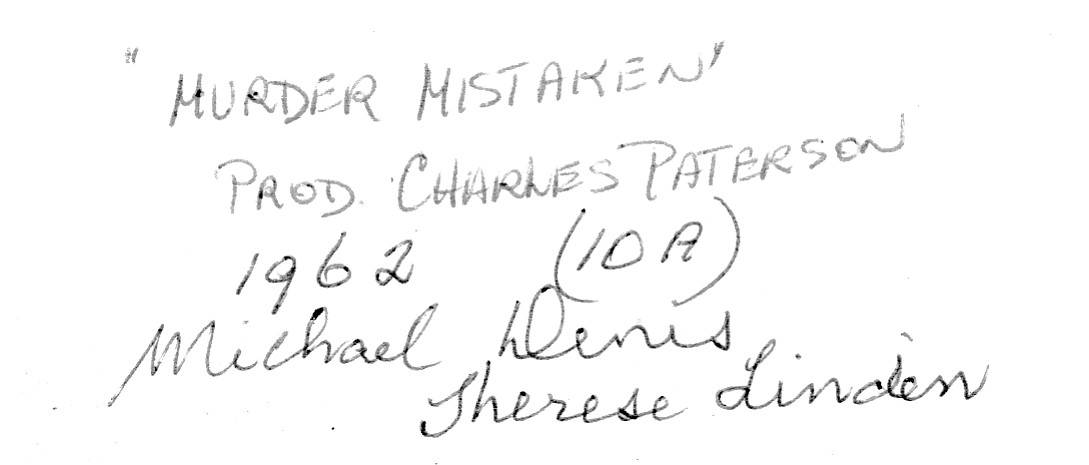 "MURDER MISTAKEN"
PROD. CHARLES PATERSON
1962 (10A)
Michael Denis
Therese Linden